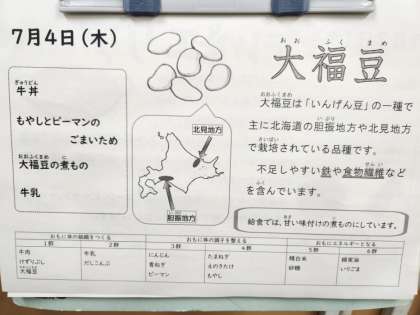 7月4日(木)
ぎゅうどん
牛丼
もやしとピーマンの
ごまいため
おおふくまめ に
大福豆の煮もの
牛乳
北見地方
胆振地方
おお ふく まめ
大福豆
おおふくまめ
大福豆は「いんげん豆」の一種で
いぶり
主に北海道の胆振地方や北見地方
さいばい
で栽培されている品種です。
せんい
不足しやすい鉄や食物繊維など
ふく
を含んでいます。
給食では、甘い味付けの煮ものにしています。
おもに体の組織をつくる おもに体の調子を整える おもにエネルギーとなる
1群 2群 3群 4群 5群 6群
牛肉 牛乳 にんじん たまねぎ 精白米 綿実油
けずりぶし だしこんぶ 青ねぎ えのきたけ 砂糖 いりごま
大福豆 ピーマン もやし